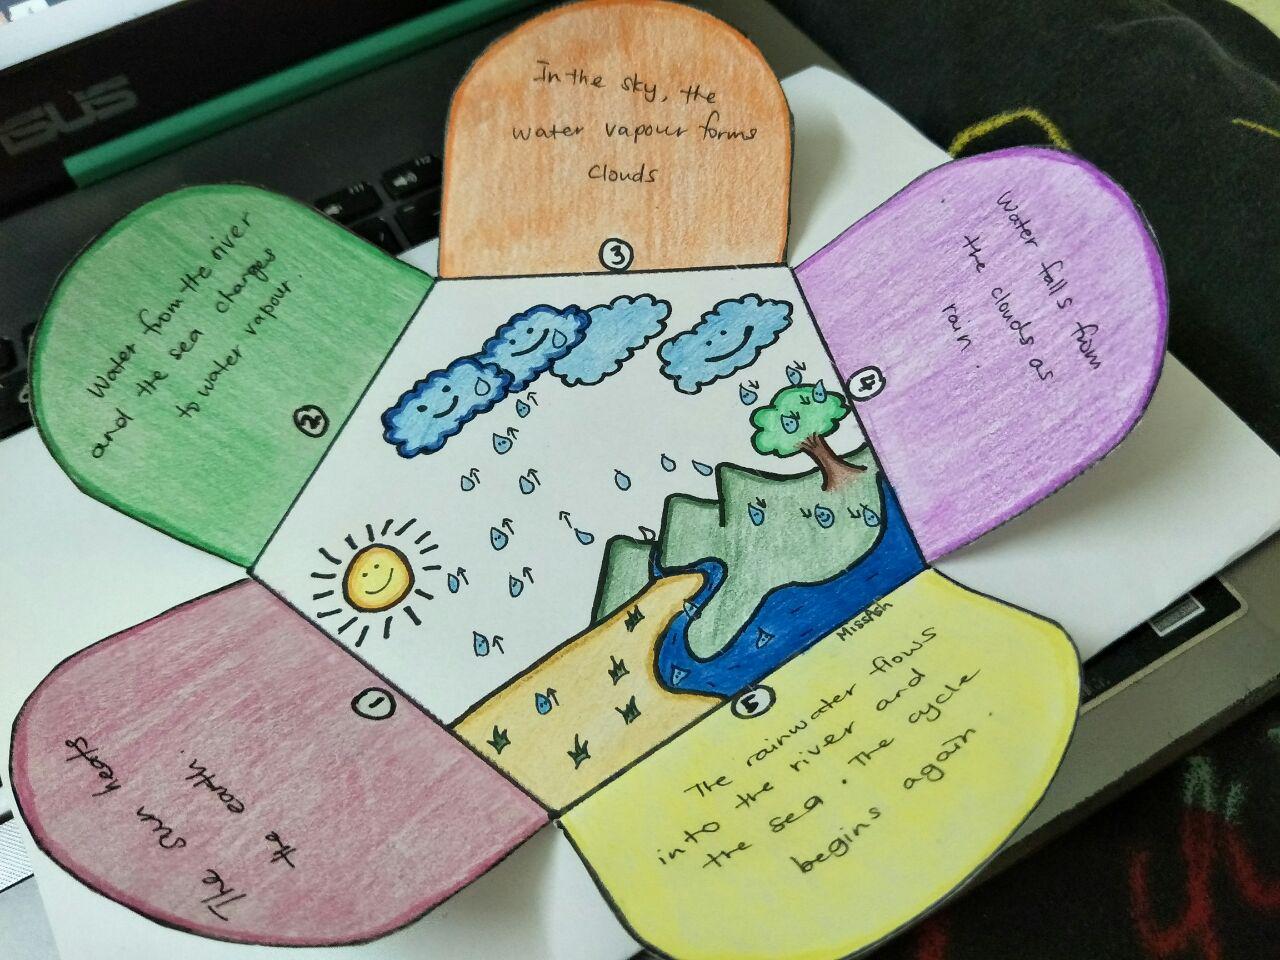 The sun heats
the earth.
1
Water from the river
and the sea changes
to water vapour.
2
In the sky, the
water vapour forms
clouds
3
Water falls from
the clouds as
rain.
4
The rainwater flows
into the river and
the sea. The cycle
begins again.
5
MissAsh
ASUS